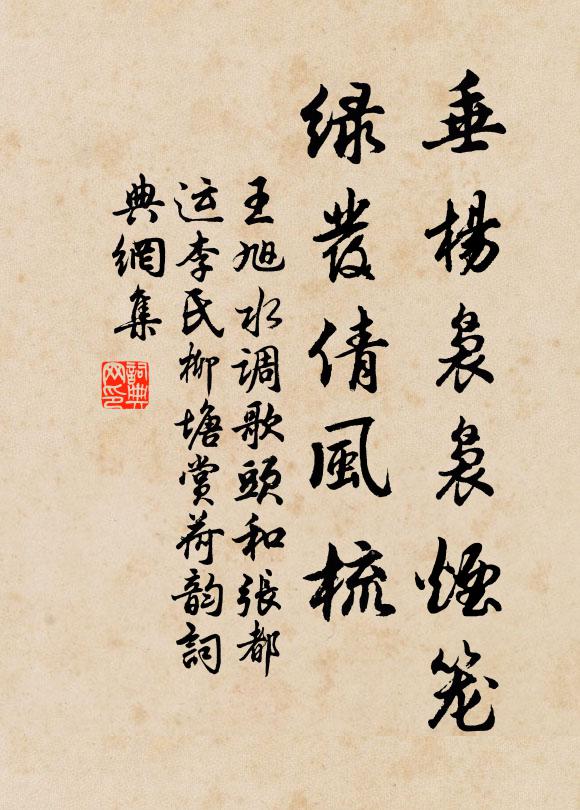 垂楊裊裊煙笼
緑發倩風梳
王旭水调歌頭和張都
运李氏柳塘赏荷韵詞
典網集
詞典網印